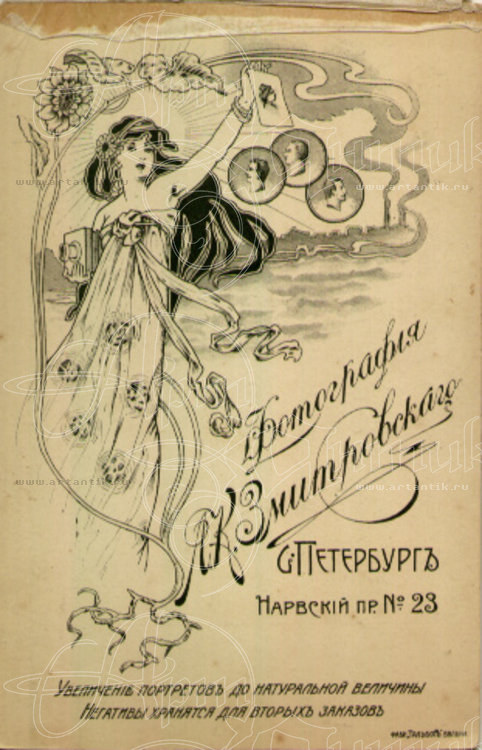 www.artantik.ru
www.artantik.ru
Фотографія
А.К. Змитровскаго
www.artantik.ru
С-ПЕТЕРБУРГЪ
НАРВСКІЙ ПР. № 23
УВЕЛИЧЕНІЕ ПОРТРЕТОВЪ ДО НАТУРАЛЬНОЙ ВЕЛИЧИНЫ
НЕГАТИВЫ ХРАНЯТСЯ ДЛЯ ВТОРЫХЪ ЗАКАЗОВЪ